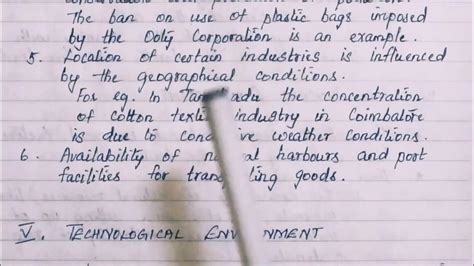 The ban on use of plastic bags imposed
by the Ooty Corporation is an example.
5. Location of certain industries is influenced
by the geographical conditions.
For eg. In Tam adu the concentration
of cotton texti industry in Coimbatore
is due to cond ive weather conditions.
6. Availability of n al harbours and port
facilities for trans ling goods.
V. TECHNOLOGICAL ENV NMENT